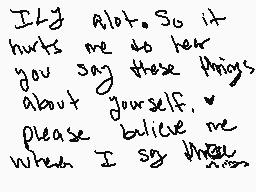 ILY alot. So it
hurts me to hear
you say these things
about yourself. ♥
please bulieve me
when I say these
things